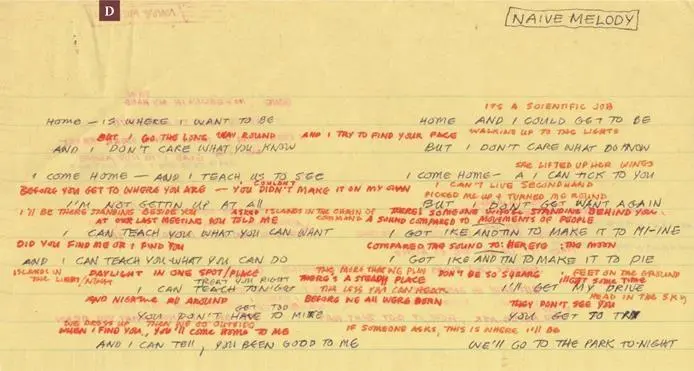 D
NAIVE MELODY
IT'S A SCIENTIFIC JOB
HOME — IS WHERE I WANT TO BE HOME AND I COULD GET TO BE
BUT I GO THE LONG WAY ROUND AND I TRY TO FIND YOUR FACE WALKING UP TO THE LIGHTS
AND I DON'T CARE WHAT YOU KNOW BUT I DON'T CARE WHAT DO KNOW
SHE LIFTED UP HER WINGS
I COME HOME — AND I TEACH US TO SEE I COME HOME — A I CAN TICK TO YOU
COULDN'T I CAN'T LIVE SECONDHAND
BEFORE YOU GET TO WHERE YOU ARE — YOU DIDN'T MAKE IT ON MY OWN PICKED ME UP & TURNED ME ROUND
I'M NOT GETTN UP AT ALL BUT I DON'T GET WANT AGAIN
I'LL BE THERE STANDING BESIDE YOU ISLANDS IN THE CHAIN OF COMMAND THERE'S SOMEONE STANDING BEHIND YOU
AT OUR LAST MEETING YOU TOLD ME A SOUND COMPARED TO MOVEMENTS OF PEOPLE
I CAN TEACH YOU WHAT YOU CAN WANT I GOT IKE AND TIN TO MAKE IT TO MI-INE
DID YOU FIND ME OR I FIND YOU COMPARED THE SOUND TO: HERETO: THE MOON
AND I CAN TEACH YOU WHAT YOU CAN DO I GOT IKE AND TIN TO MAKE IT TO PIE
ISLANDS IN THE LIGHT/NIGHT DAYLIGHT IN ONE SPOT/PLACE THE MORE THAT WE PLAY DON'T BE SO SQUARE FEET ON THE GROUND
TREAT YOU RIGHT THERE'S A STEADY PLACE MEET SOME TIME
I CAN TEACH TONIGHT THE LESS YOU CAN HEAR I'LL GET MY DRIVE
AND NIGHTTIME ALL AROUND BEFORE WE ALL WERE BORN THEY DON'T SEE YOU HEAD IN THE SKY
GET TOO
YOU DON'T HAVE TO YOU GET TO TRY
WE DRESS UP THEN WE GO OUTSIDE
WHEN I FIND YOU, YOU'LL COME HOME TO ME IF SOMEONE ASKS, THIS IS WHERE I'LL BE
AND I CAN TELL, YOU BEEN GOOD TO ME WE'LL GO TO THE PARK TO-NIGHT